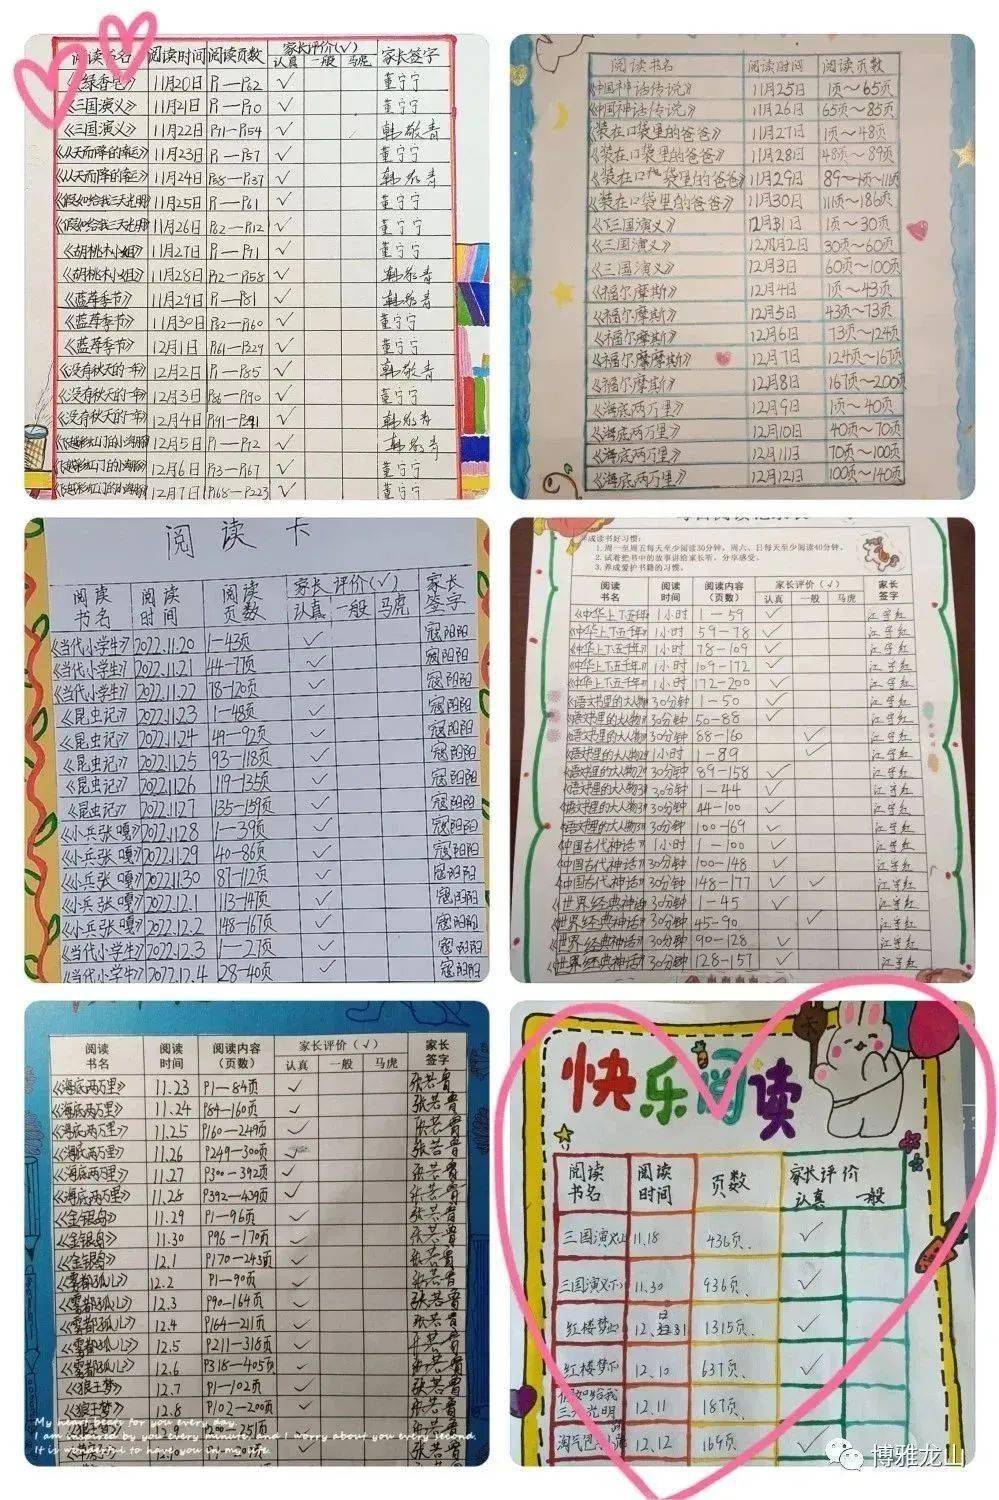 阅读书名 阅读时间 阅读页数 家长评价(√) 家长签字
认真 一般 马虎
《绿香皂》 11月20日 P1—P62 √ 董宁宁
《三国演义》 11月21日 P1—P70 √ 董宁宁
《三国演义》 11月22日 P71—P154 √ 韩敬青
《从天而降的幸运》 11月23日 P1—P57 √ 董宁宁
《从天而降的幸运》 11月24日 P58—P137 √ 韩敬青
《假如给我三天光明》 11月25日 P1—P61 √ 董宁宁
《假如给我三天光明》 11月26日 P62—P112 √ 董宁宁
《胡桃木小姐》 11月27日 P1—P71 √ 董宁宁
《胡桃木小姐》 11月28日 P72—P158 √ 韩敬青
《蓝莓季节》 11月29日 P1—P81 √ 韩敬青
《蓝莓季节》 11月30日 P82—P160 √ 董宁宁
《蓝莓季节》 12月1日 P161—P229 √ 董宁宁
《没有秋天的一年》 12月2日 P1—P85 √ 韩敬青
《没有秋天的一年》 12月3日 P86—P190 √ 董宁宁
《没有秋天的一年》 12月4日 √ 韩敬青
12月5日 P1—P72 √ 韩敬青
12月6日 P73—P167 √ 董宁宁
12月7日 P168—P223 √ 董宁宁
阅读书名 阅读时间 阅读页数
《中国神话传说》 11月25日 1页～65页
《中国神话传说》 11月26日 65页～85页
《装在口袋里的爸爸》 11月27日 1页～48页
《装在口袋里的爸爸》 11月28日 48页～89页
《装在口袋里的爸爸》 11月29日
《装在口袋里的爸爸》 11月30日 111页～186页
《三国演义》 12月31日 1页～30页
《三国演义》 12月2日 30页～60页
《三国演义》 12月3日 60页～100页
《福尔摩斯》 12月4日 1页～43页
《福尔摩斯》 12月5日 43页～73页
《福尔摩斯》 12月6日 73页～124页
《福尔摩摩斯》 12月7日 124页～167页
《福尔摩斯》 12月8日 167页～200页
《海底两万里》 12月9日 1页～40页
《海底两万里》 12月10日 40页～70页
《海底两万里》 12月11日 70页～100页
《海底两万里》 12月12日 100页～140页
阅读卡
阅读书名 阅读时间 阅读页数 家长评价(√) 家长签字
认真 一般 马虎
《当代小学生》 2022.11.20 1—43页 √ 寇阳阳
《当代小学生》 2022.11.21 44—77页 √ 寇阳阳
《当代小学生》 2022.11.22 78—120页 √ 寇阳阳
《昆虫记》 2022.11.23 1—48页 √ 寇阳阳
《昆虫记》 2022.11.24 49—92页 √ 寇阳阳
《昆虫记》 2022.11.25 93—118页 √ 寇阳阳
《昆虫记》 2022.11.26 119—135页 √ 寇阳阳
《昆虫记》 2022.11.27 135—159页 √ 寇阳阳
《小兵张嘎》 2022.11.28 1—39页 √ 寇阳阳
《小兵张嘎》 2022.11.29 40—86页 √ 寇阳阳
《小兵张嘎》 2022.11.30 87—112页 √ 寇阳阳
《小兵张嘎》 2022.12.1 113—147页 √ 寇阳阳
《小兵张嘎》 2022.12.2 148—167页 √ 寇阳阳
《当代小学生》 2022.12.3 1—27页 √ 寇阳阳
《当代小学生》 2022.12.4 28—40页 √ 寇阳阳
养成读书好习惯:
1.周一至周五每天至少阅读30分钟，周六、日每天至少阅读40分钟。
2.试着把书中的故事讲给家长听，分享感受。
3.养成爱护书籍的习惯。
阅读书名 阅读时间 阅读内容（页数） 家长评价（√） 家长签字
认真 一般 马虎
《中华上下五千年》 1小时 1—59 √
《中华上下五千年》 1小时 59—78 √
《中华上下五千年》 1小时 78—109 √
《中华上下五千年》 1小时 109—172 √
《中华上下五千年》 1小时 172—200 √
《语文书里的大人物 30分钟 1—50 √
《语文书里的大人物 30分钟 50—88 √
语文书里的大人物 30分钟 88—160 √
语文书里的大人物 1小时 1—89 √
语文书里的大人物 30分钟 89—158 √
语文书里的大人物 30分钟 1—44 √
语文书里的大人物 30分钟 44—100 √
语文书里的大人物 30分钟 100—169 √
《中国古代神话》 1小时 1—100 √
《中国古代神话》 30分钟 100—148 √
《中国古代神话》 30分钟 148—177 √ √
《世界经典神话 30分钟 1—45 √
《世界经典神话》 30分钟 45—90 √
《世界经典神话》 30分钟 90—128 √
《世界经典神话》 30分钟 128—157 √
阅读书名 阅读时间 阅读内容（页数） 家长评价（√） 家长签字
认真 一般 马虎
《海底两万里》 11.23 P1—84页 √
《海底两万里》 11.24 P84—160页 √
《海底两万里》 11.25 P160—249页 √
《海底两万里》 11.26 P249—300页 √
《海底两万里》 11.27 P300—392页 √
《海底两万里》 11.28 P392—409页 √
《金银岛》 11.29 P1—96页 √
《金银岛》 11.30 P96—170页 √
《金银岛》 12.1 P170—243页 √
《雾都孤儿》 12.2 P1—90页 √
《雾都孤儿》 12.3 P90—164页 √
《雾都孤儿》 12.4 P164—211页 √
《雾都孤儿》 12.5 P211—318页 √
《雾都孤儿》 12.6 P318—405页 √
《狼王梦》 12.7 P1—102页 √
《狼王梦》 12.8 P102—200页 √
12.9
My heart beats for you every day.
I am inspired by you every minute, and I worry about you every second.
It is wonderful to have you in my life.
快乐阅读
阅读书名 阅读时间 页数 家长评价
认真 一般
三国演义 11.18 436页. √
三国演义 11.30 936页. √
红楼梦 12. 1315页. √
红楼梦 12.10 637页. √
假如给我三天光明 12.11 187页. √
淘气包 12.12 169页. √
博雅龙山